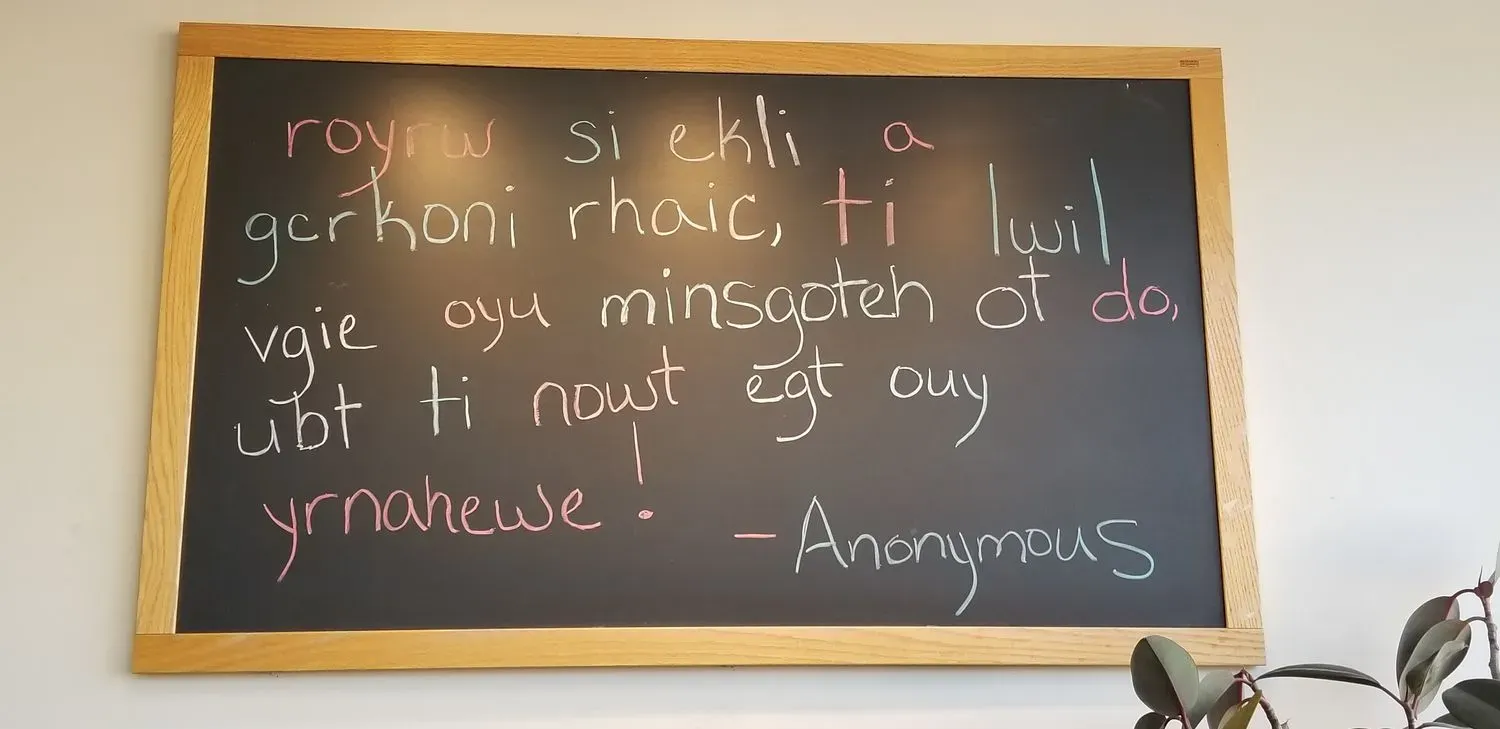 royrw si ekli a
gcrkoni rhaic, ti lwil
vgie oyu minsgoteh ot do,
ubt ti nowt egt ouy
yrnahewe!
- Anonymous